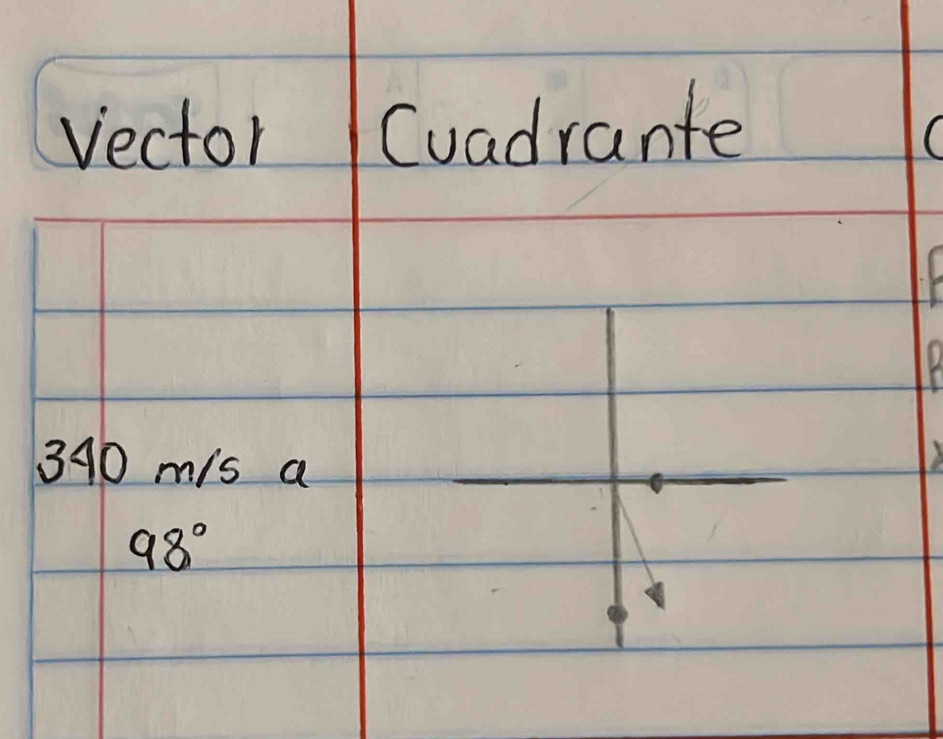 Vector Cuadrante
340 m/s a
98°